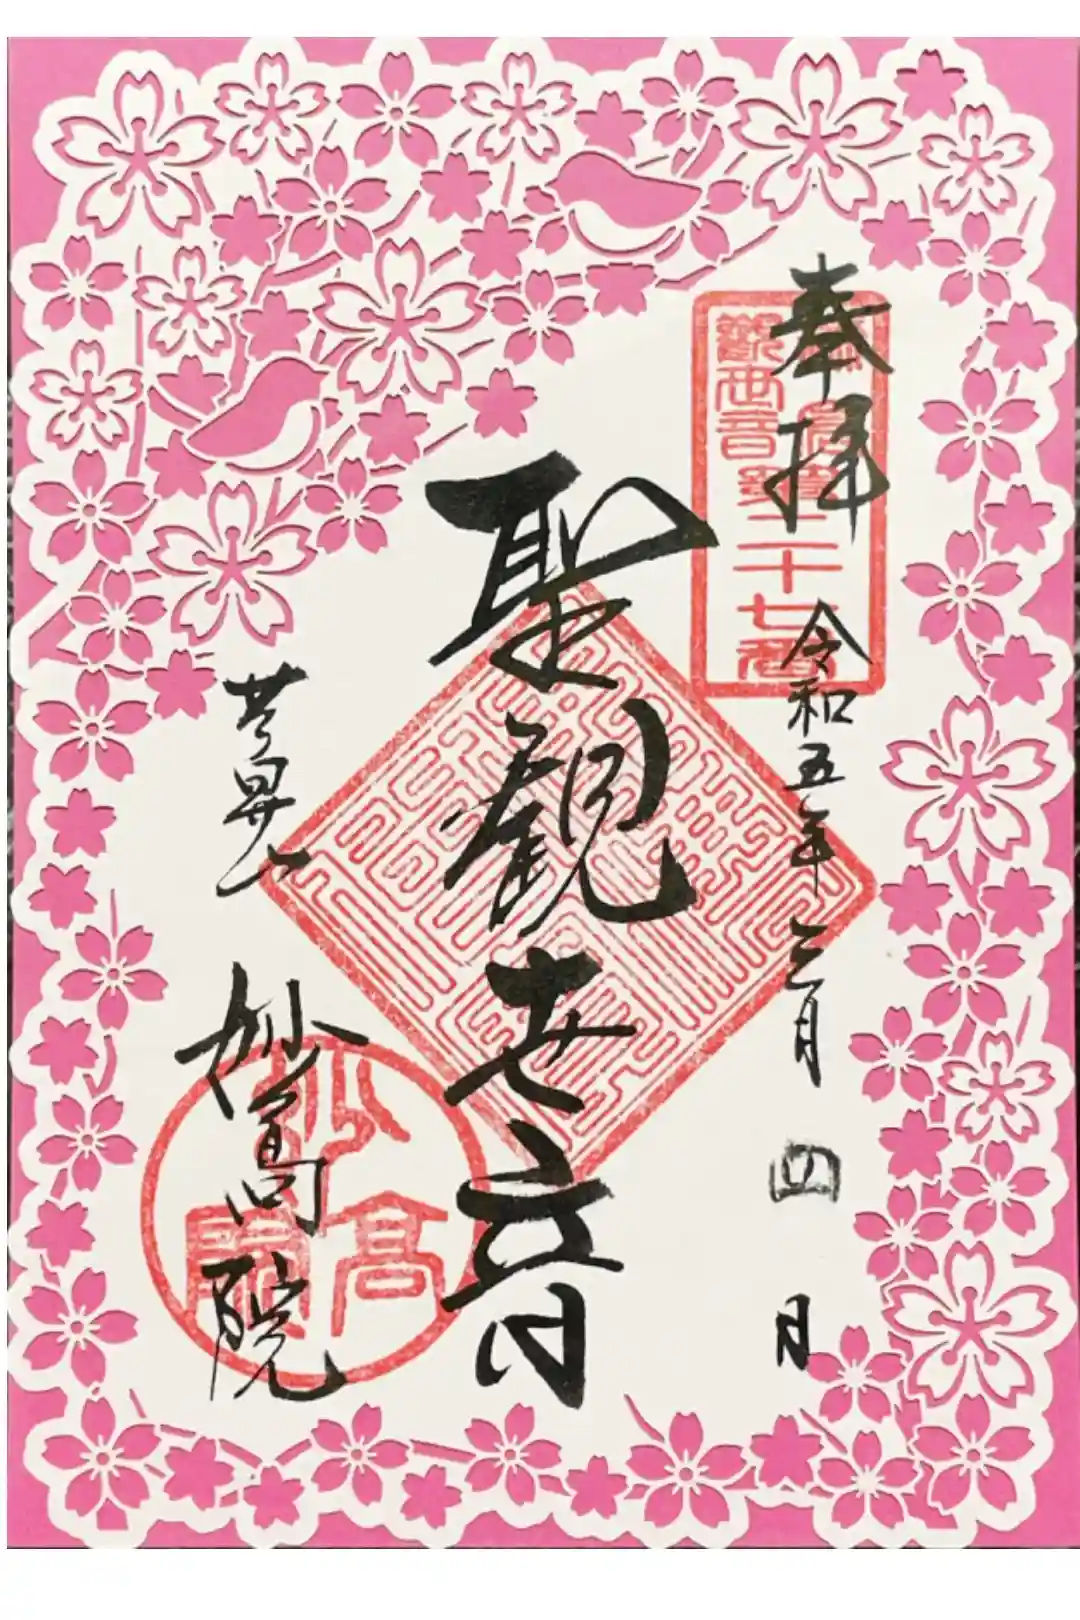 奉拝
令和五年三月四日
觀世音第二十七番
聖観世音
妙高院
妙高院